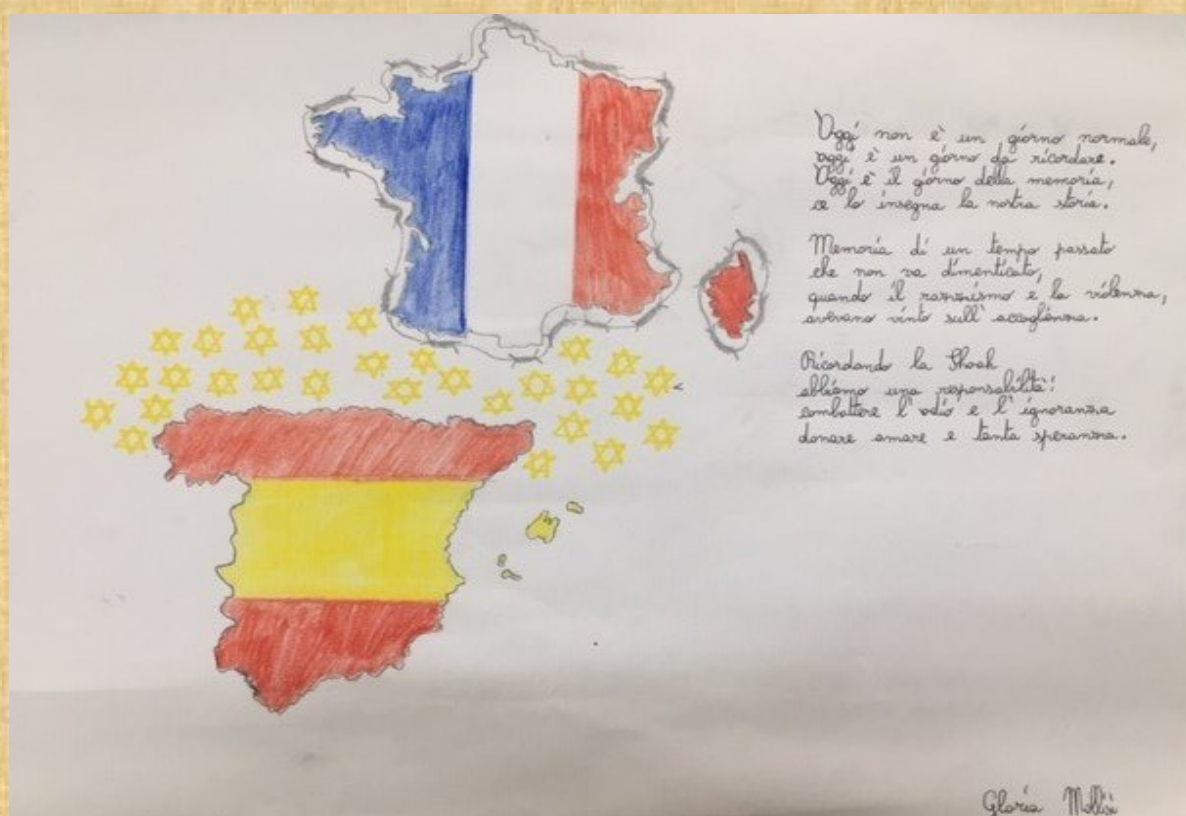 Oggi non è un giorno normale,
oggi è un giorno da ricordare.
Oggi è il giorno della memoria,
ce lo insegna la nostra storia.
Memoria di un tempo passato
che non va dimenticato,
quando il razzismo e la violenza,
avevano vinto sull'accoglienza.
Ricordando la Shoah
abbiamo una responsabilità:
combattere l'odio e l'ignoranza
donare amare e tanta speranza.
Gloria